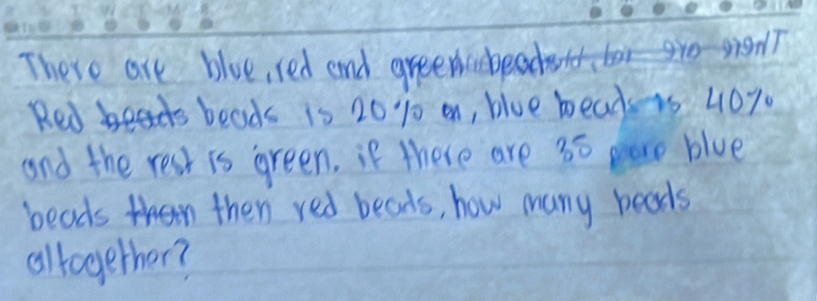 There are blue, red and green beads
Red beads beads is 20% , blue beads is 40%
and the rest is green. if there are 35 more blue
beads than then red beads, how many beads
altogether?